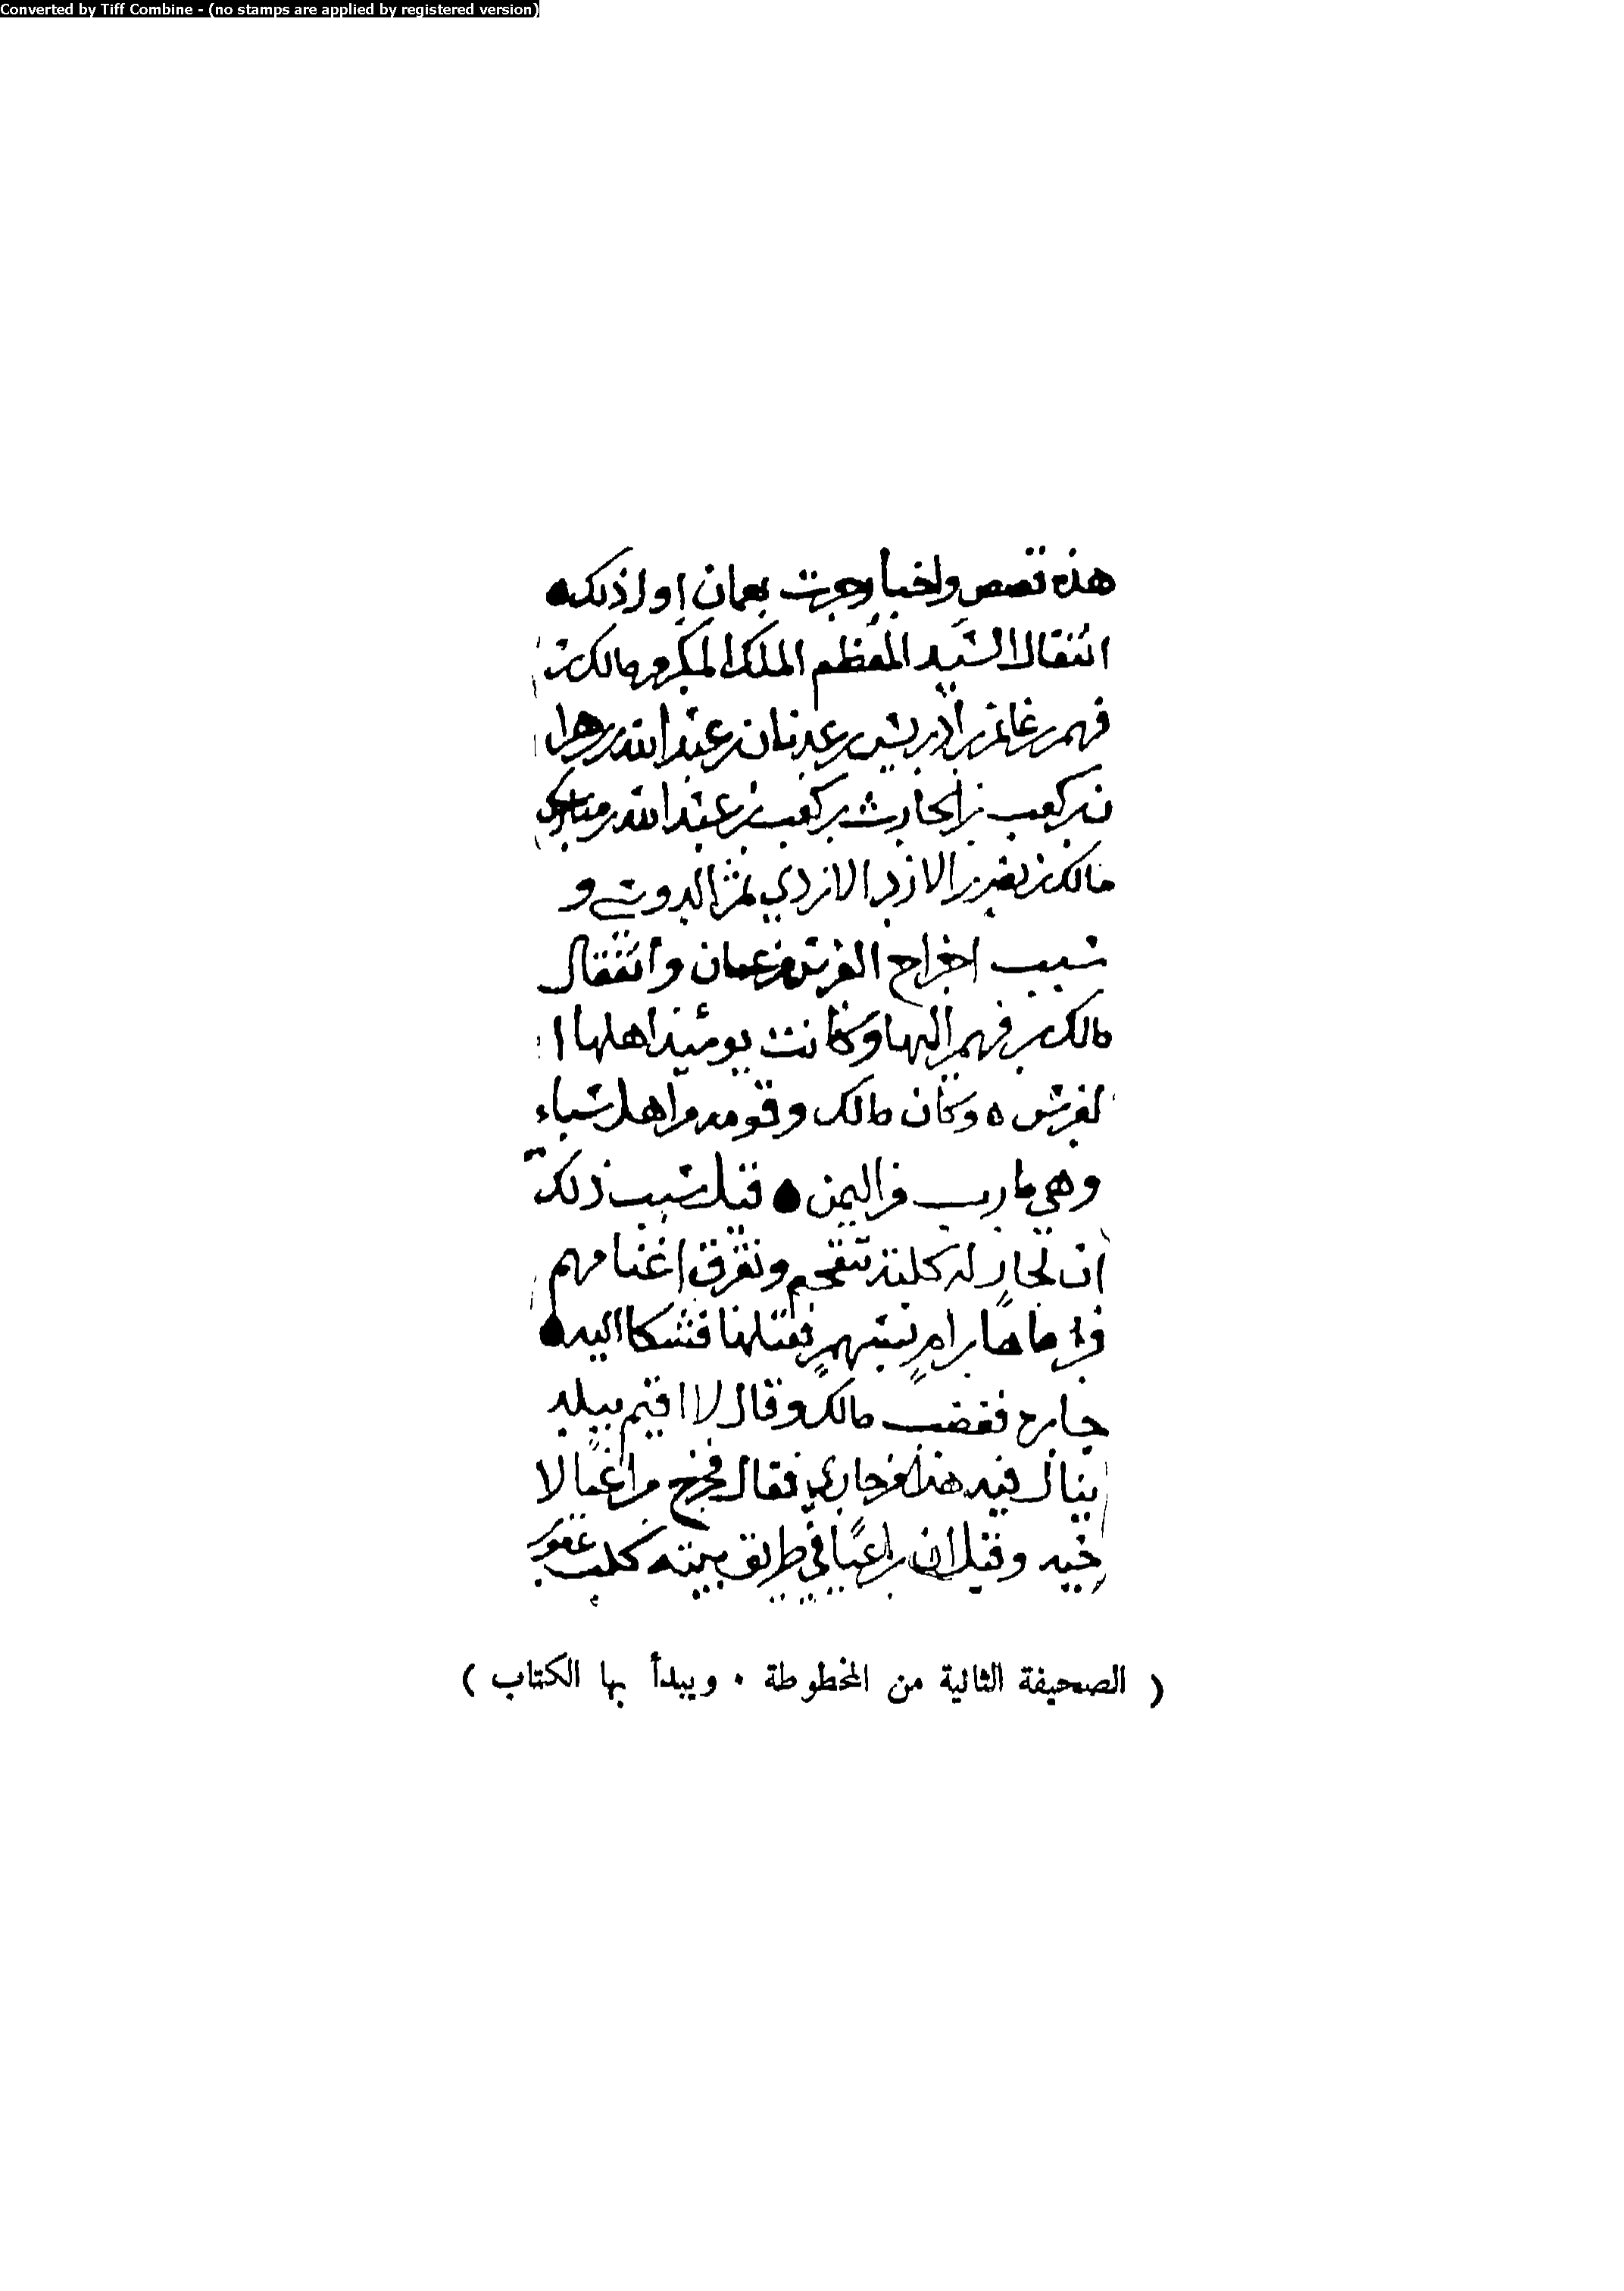 Converted by Tiff Combine - (no stamps are applied by registered version)
هذه قصص واخبار جرت بعمان اول ذلك
انتقال السيد المعظم الملك المكرم مالك بن
فهم بن غانم بن ادريس بن عدنان بن عبد الله بن زهرا
ن بن كعب بن الحارث بن كعب بن عبد الله بن
مالك بن نصر بن الازد الازدي ثم الدوسي و
سبب اخراج الفرس من عمان وانتقال
مالك بن فهم اليها وكانت يومئذ اهلها ا
لفرس ه وكان مالك وقومه من اهل سباء
وهي مارب من اليمن قيل سبب ذلك
ان لجار له كلبة وتفرق اغنامهم
رام بسهم فقتلها فشكا اليه
جاره فغضب مالك وقال لا اقيم ببلد
ينال فيه هذا من جاري فقال فخرج مراغما لا
خيه وقيل ان راعيا في طريق بيته كلب عقور
( الصحيفة الثانية من المخطوطة . ويبدأ بها الكتاب )